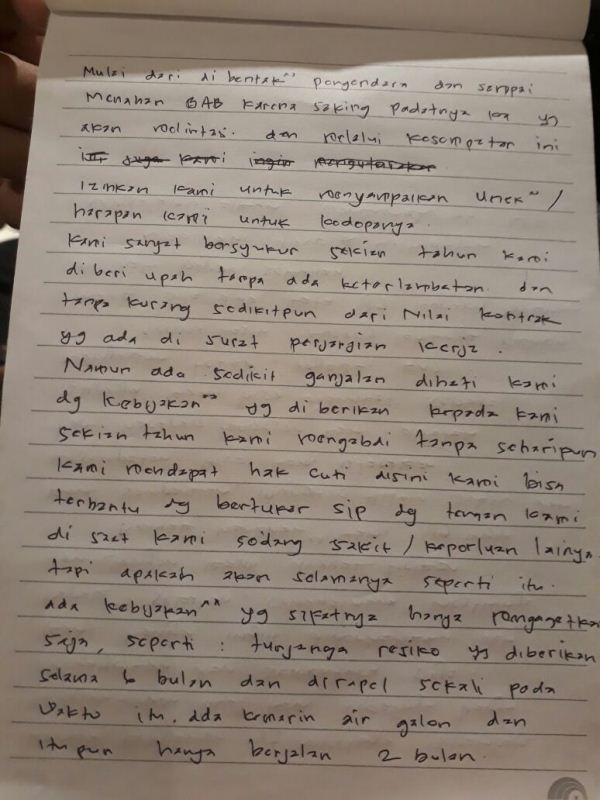 Mulai dari di bentak" pengendara dan sampai
menahan BAB karena saking padatnya ka yg
akan melintas. dan melalui kesempatan ini
ini juga kami ingin mengutarakan
izinkan kami untuk menyampaikan unek" /
harapan kami untuk kedepanya.
kami sangat bersyukur sekian tahun kami
di beri upah tanpa ada keterlambatan. dan
tanpa kurang sedikitpun dari Nilai kontrak
yg ada di surat perjanjian kerja.
Namun ada sedikit ganjalan dihati kami
dg kebijakan" yg di berikan kepada kami
sekian tahun kami mengabdi tanpa seharipun
kami mendapat hak cuti disini kami bisa
terbantu dg bertukar sip dg teman kami
di saat kami sedang sakit / keperluan lainya.
tapi apakah akan selamanya seperti itu.
ada kebijakan" yg sifatnya hanya mengagetkan
saja, seperti : tunjangan resiko yg diberikan
selama 6 bulan dan dirapel sekali pada
waktu itu. ada kemarin air galon dan
itupun hanya berjalan 2 bulan.